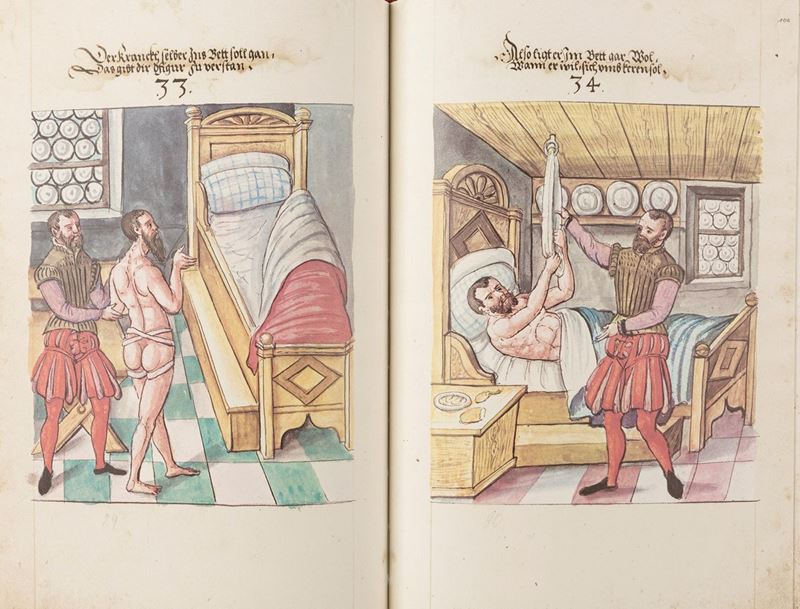 Der Kranckh selber Ins Bett soll gan,
Das gibt dir Figur zu verstan.
33.
Also ligt er Im Bett gar Wol,
Wann er wil sich umb keren sol,
34.
102